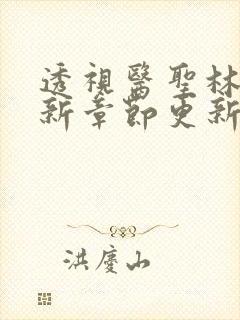 透視醫聖林
新章節更新
洪慶山